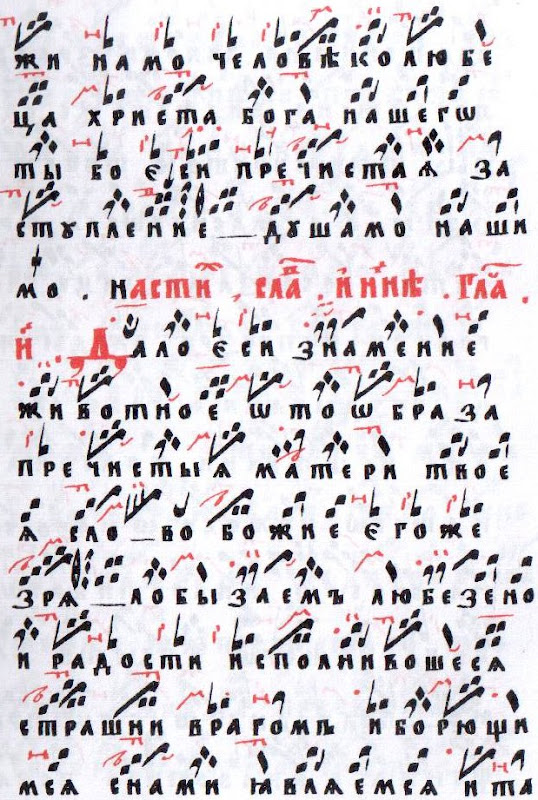 жи намо человѣколюбе
ца христа бога нашегѡ
ты бо єси пречистаѧ за
ступление душамо наши
мо . насти , сла , и нинѣ . гла
и . Дало єси знамение
животноє ѡтоѡбраза
пречистыѧ матери твоє
ѧ сло во божие єгоже
зрѧ лобызаемъ любезено
и радости исполнивошесѧ
страшни врагомъ и борющи
мсѧ снами ꙗвлѧемсѧ и та